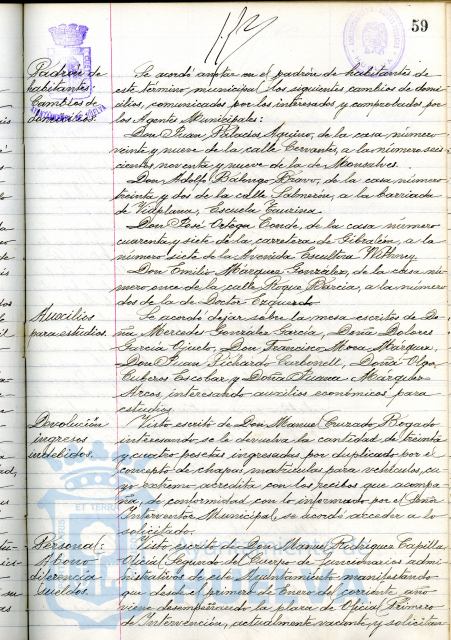 59
Padrón de
habitantes.
Cambios de
domicilios.
Se acordó anotar en el padrón de habitantes de
este término municipal los siguientes cambios de domi-
cilios, comunicados por los interesados y comprobados por
los Agentes Municipales:
Don Juan Palacios Aquino, de la casa número
veinte y nueve de la calle Cervantes, a la número seis-
cientos noventa y nueve de la de Monsalves.
Don Adolfo Bravo, de la casa número
treinta y dos de la calle Salmerón, a la barriada
de Vidplana, Escuela Taurina.
Don José Ortega Conde, de la casa número
cuarenta y siete de la carretera de Gibraleón, a la
número siete de la Avenida Escultora Withney.
Don Emilio Márquez González, de la casa nú-
mero once de la calle Roque Barcia, a la número
dos de la de Doctor Ezquerdo
Auxilios
para estudios.
Se acordó dejar sobre la mesa escritos de Do-
ña Mercedes González García, Doña Dolores
García Ojuelo, Don Francisco Mora Márquez,
Don Juan Pichardo Carbonell, Doña Olga
Cuberos Escobar, y Doña Juana Márquez
Arcos, interesando auxilios económicos para
estudios.
Devolución
ingresos
indebidos.
Visto escrito de Don Manuel Curado Bogado
interesando se le devuelva la cantidad de treinta
y cuatro pesetas ingresadas por duplicado por el
concepto de chapas, matrículas para vehículos, cu-
yo extremo, acredita con los recibos que acompa-
ña, de conformidad con lo informado por el Señor
Interventor Municipal, se acordó acceder a lo
solicitado.
Personal:
Abono
diferencia
sueldos.
Visto escrito de Don Manuel Rodríguez Capilla,
Oficial Segundo del Cuerpo de funcionarios admi-
nistrativos de este Ayuntamiento manifestando
que desde el primero de Enero del corriente año
viene desempeñando la plaza de Oficial Primero
de Intervención, actualmente vacante, y solicitan